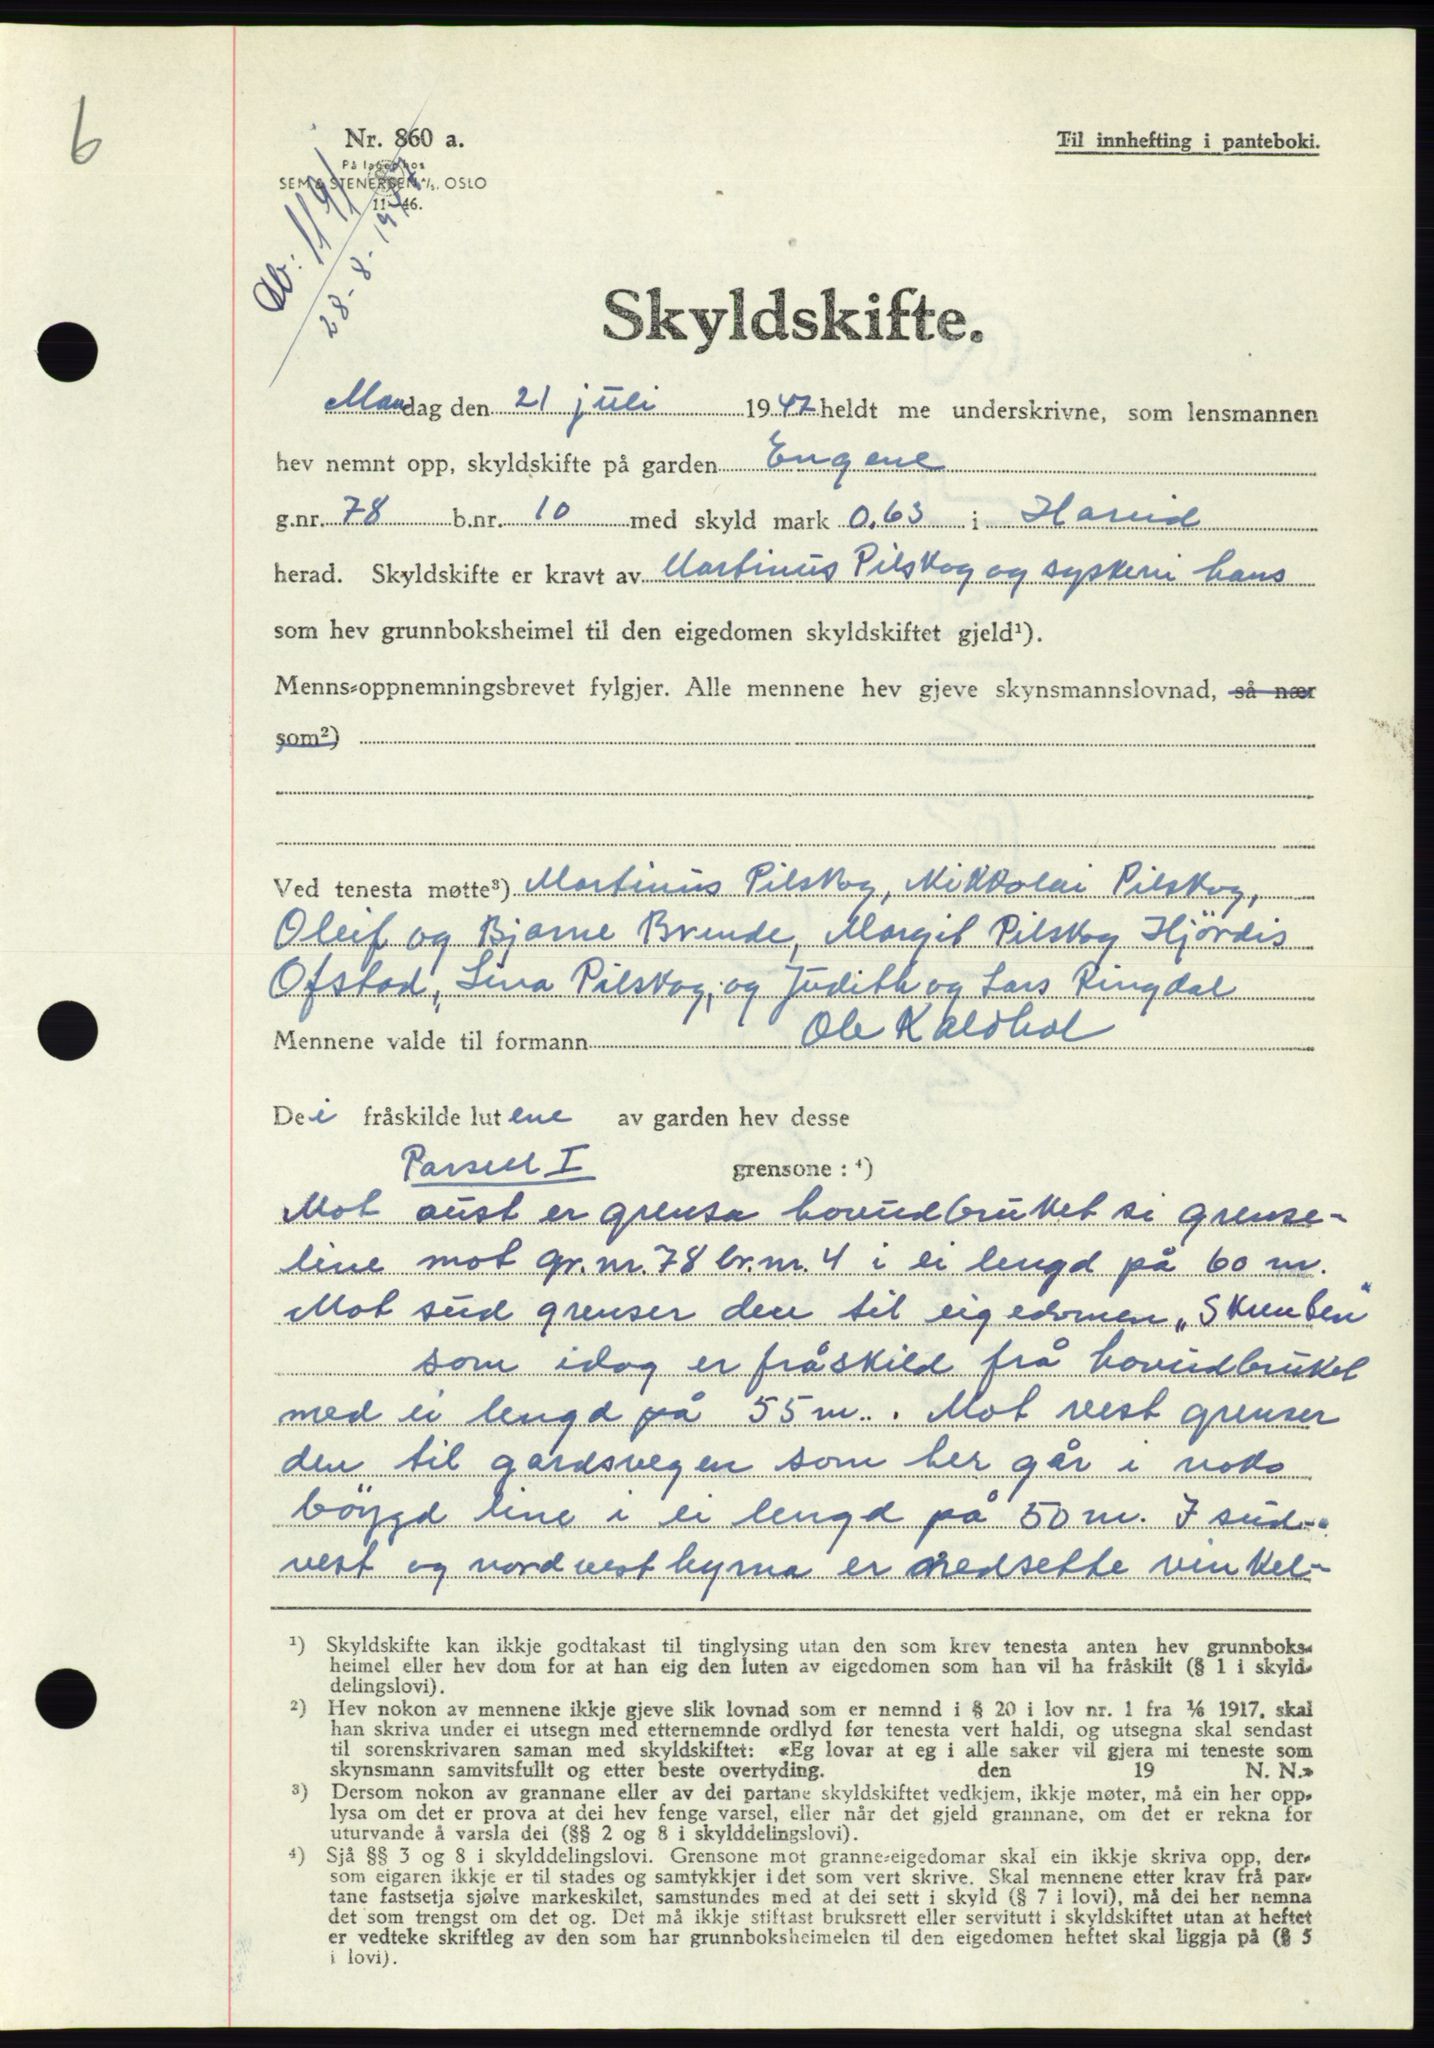 6
Nr. 860 a.
Til innhefting i panteboki.
På lager hos
SEM & STENERSEN A/S, OSLO
11—46.
Db: 1191
28-8-1947
Skyldskifte.
Mandag den 21 juli 1947 heldt me underskrivne, som lensmannen
hev nemnt opp, skyldskifte på garden Engene
g.nr. 78 b.nr. 10 med skyld mark 0.63 i Hareid
herad. Skyldskifte er kravt av Martinus Pilskog og syskeni hans
som hev grunnboksheimel til den eigedomen skyldskiftet gjeld¹).
Menns-oppnemningsbrevet fylgjer. Alle mennene hev gjeve skynsmannslovnad, så nær
som²)
Ved tenesta møtte³) Martinus Pilskog, Nikkolai Pilskog,
Oleif og Bjarne Brende, Margit Pilskog Hjördis
Ofstad, Lina Pilskog, og Judith og Lars Ringdal
Mennene valde til formann Ole Kaldhol
Dei fråskilde lutene av garden hev desse
Parsell I grensone : ⁴)
Mot aust er grensa hovudbruket si grense-
line mot gr.nr. 78 br.nr. 4 i ei lengd på 60 m.
Mot sud grenser den til eigedomen „Skrenten"
som idag er fråskild frå hovudbruket
med ei lengd på 55 m. . Mot vest grenser
den til gardsvegen som her går i noko
böygd line i ei lengd på 50 m. I sud-
vest og nordvesthyrna er nedsette vinkel-
¹) Skyldskifte kan ikkje godtakast til tinglysing utan den som krev tenesta anten hev grunnboks-
heimel eller hev dom for at han eig den luten av eigedomen som han vil ha fråskilt (§ 1 i skyld-
delingslovi).
²) Hev nokon av mennene ikkje gjeve slik lovnad som er nemnd i § 20 i lov nr. 1 fra 1/6 1917, skal
han skriva under ei utsegn med etternemnde ordlyd før tenesta vert haldi, og utsegna skal sendast
til sorenskrivaren saman med skyldskiftet: «Eg lovar at eg i alle saker vil gjera mi teneste som
skynsmann samvitsfullt og etter beste overtyding. den 19 N. N.»
³) Dersom nokon av grannane eller av dei partane skyldskiftet vedkjem, ikkje møter, må ein her opp-
lysa om det er prova at dei hev fenge varsel, eller når det gjeld grannane, om det er rekna for
uturvande å varsla dei (§§ 2 og 8 i skylddelingslovi).
⁴) Sjå §§ 3 og 8 i skylddelingslovi. Grensone mot granne-eigedomar skal ein ikkje skriva opp, der-
som eigaren ikkje er til stades og samtykkjer i det som vert skrive. Skal mennene etter krav frå par-
tane fastsetja sjølve markeskilet, samstundes med at dei sett i skyld (§ 7 i lovi), må dei her nemna
det som trengst om det og. Det må ikkje stiftast bruksrett eller servitutt i skyldskiftet utan at heftet
er vedteke skriftleg av den som har grunnboksheimelen til den eigedomen heftet skal liggja på (§ 5
i lovi).